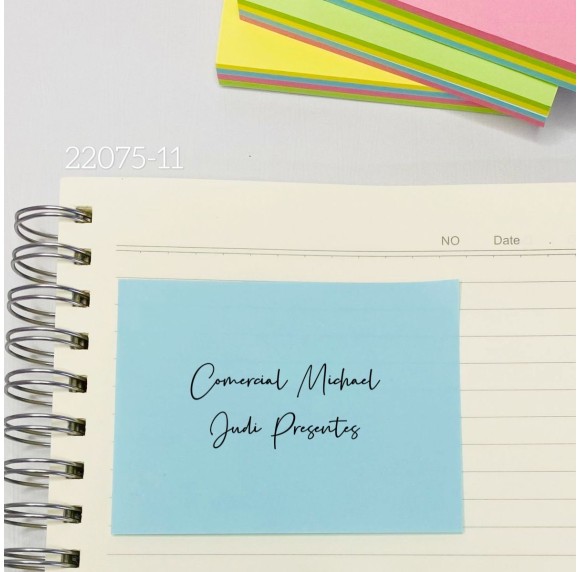 22075-11
NO Date
Comercial Michael
Judi Presentes